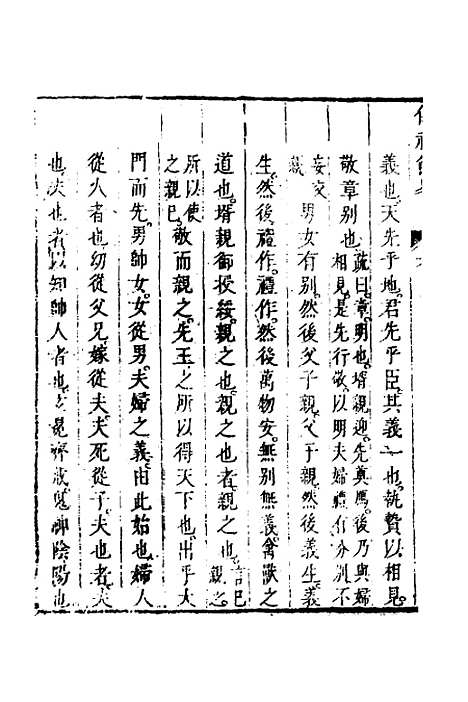 義也天先乎地君先乎臣其義一也執贄以相見
敬章別也疏曰章明也壻親迎先奠鴈後乃與婦
相見是先行敬以明夫婦禮有分別不
妄交
親男女有別然後父子親父子親然後義生義
生然後禮作禮作然後萬物安無別無義禽獸之
道也壻親御授綏親之也親之也者親之也言己
親之
所以使
之親己敬而親之先王之所以得天下也出乎大
門而先男帥女女從男夫婦之義由此始也婦人
從人者也幼從父兄嫁從夫夫死從子夫也者夫
也夫也者以知帥人者也玄冕齊戒鬼神陰陽也